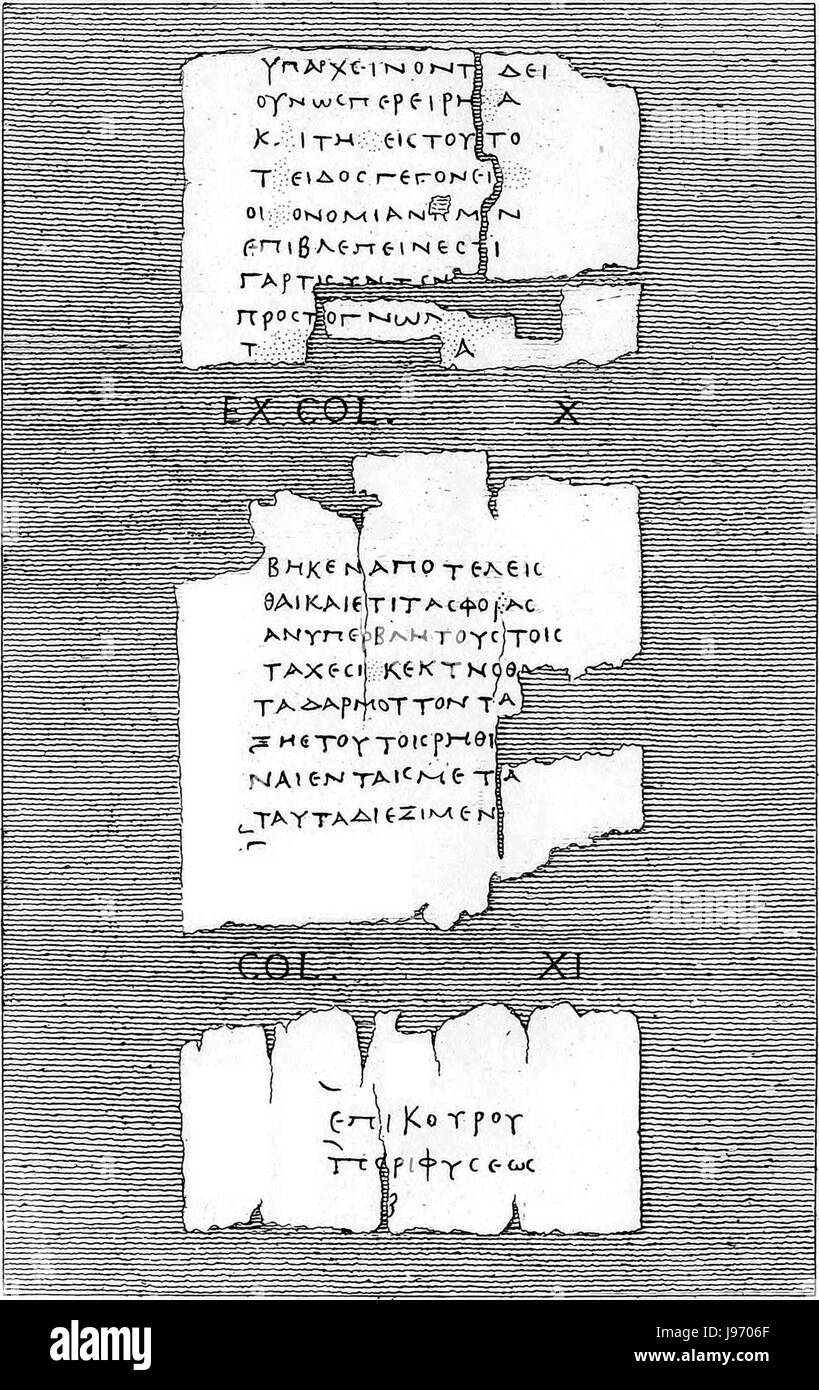 ΥΠΑΡΧΕΙΝΟΝΤ ΔΕΙ
ΟΥΝΩϹΠΕΡΕΙΡΗ Α
Κ. ΙΤΗ ΕΙϹΤΟΥΤΟ
Τ ΕΙΔΟϹΓΕΓΟΝΕΙ
ΟΙ ΟΝΟΜΙΑΝ ΜΝ
ΕΠΙΒΛΕΠΕΙΝΕϹΤΙ
ΠΡΟϹΤΟΓΝΩ
Τ Α
EX COL. X
ΒΗΚΕΝΑΠΟΤΕΛΕΙϹ
ΘΑΙΚΑΙΕΤΙΤΑϹΦΟΡΑϹ
ΑΝΥΠΕΡΒΛΗΤΟΥϹΤΟΙϹ
ΤΑΧΕϹΙ ΚΕΚΤΝΟΘΑ
ΤΑΔΑΡΜΟΤΤΟΝΤΑ
ΞΗΕΤΟΥΤΟΙϹΡΗΘΙ
ΝΑΙΕΝΤΑΙϹΜΕΤΑ
ΤΑΥΤΑΔΙΕΞΙΜΕΝ
COL. XI
ΕΠΙΚΟΥΡΟΥ
ΠΕΡΙΦΥϹΕΩϹ
alamy
Image ID: J9706F
www.alamy.com